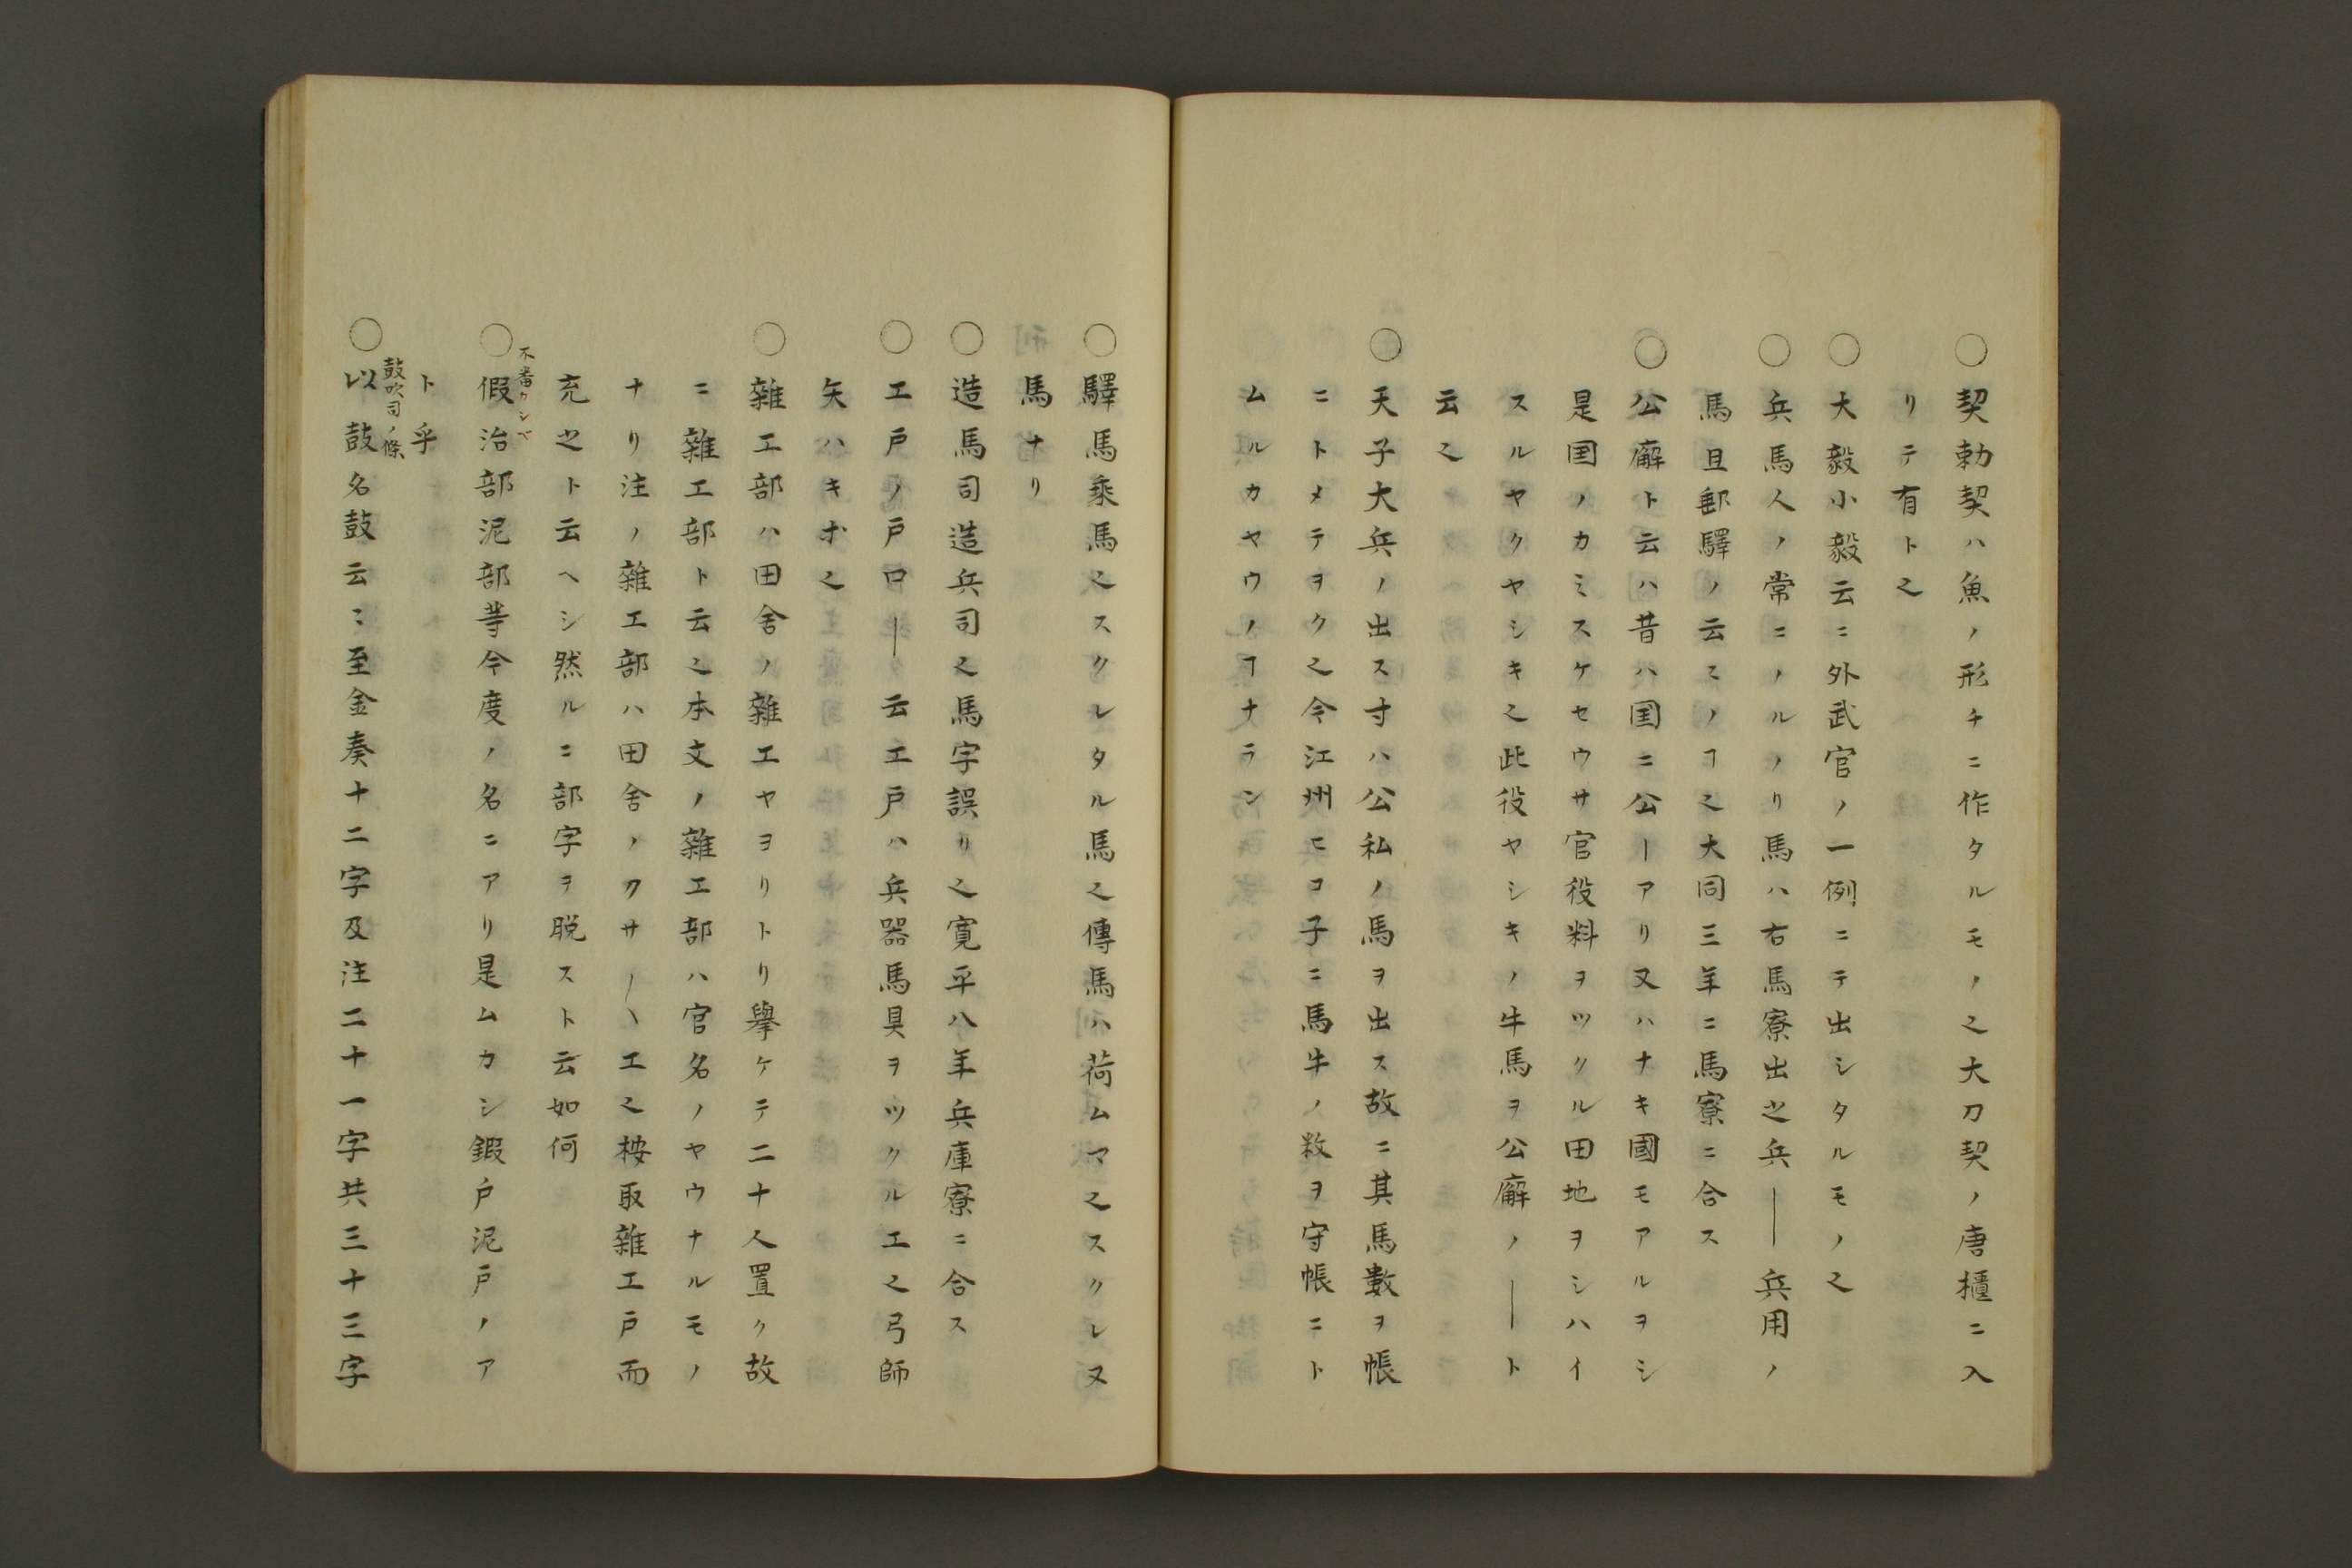 ○契勅契ハ魚ノ形チニ作タルモノ之大刀契ノ唐櫃ニ入
リテ有ト之
○大毅小毅云ニ外武官ノ一例ニテ出シタルモノ之
○兵馬人ノ常ニノルノリ馬ハ右馬寮出之兵――兵用ノ
馬且郵驛ノ云〻ノヿ之大同三年ニ馬寮ニ合ス
○公廨ト云ハ昔ハ国ニ公―アリ又ハナキ國モアルヲシ
是国ノカミスケセウサ官役料ヲツクル田地ヲシハイ
スルヤクヤシキ之此役ヤシキノ牛馬ヲ公廨ノ――ト
云之
○天子大兵ノ出ス寸ハ公私ノ馬ヲ出ス故ニ其馬數ヲ帳
ニトメテヲク之今江州ヒコ子ニ馬牛ノ数ヲ守帳ニト
ムルカヤウノヿナラン
○驛馬乘馬之スクレタル馬之傳馬ハ荷ムマ之スクレ又
馬ナリ
○造馬司造兵司之馬字誤リ之寛平八年兵庫寮ニ合ス
○工戸ノ戸口―云工戸ハ兵器馬具ヲツクル工之弓師
矢ハキホ之
○雜工部ハ田舍ノ雜工ヤヨリトリ擧ケテ二十人置ク故
ニ雜工部ト云之本文ノ雜工部ハ官名ノヤウナルモノ
ナリ注ノ雜工部ハ田舍ノクサ〳〵工之桉取雜工戸而
充之ト云ヘシ然ルニ部字ヲ脱スト云如何
不番ケシベ
○假治部泥部等今度ノ名ニアリ是ムカシ鍜戸泥戸ノア
ト乎
鼓吹司ノ條
○以鼓名鼓云〻至金奏十二字及注二十一字共三十三字